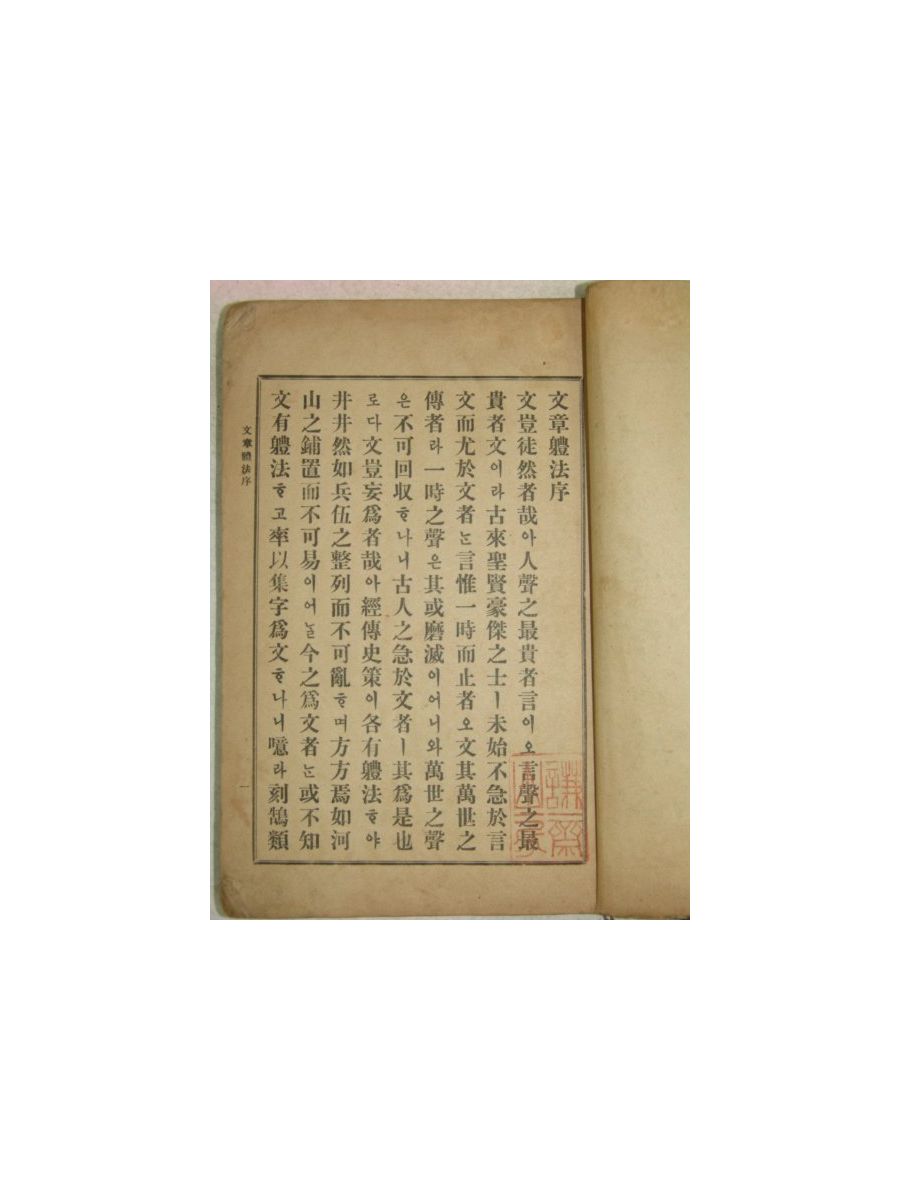 文章軆法序
文豈徒然者哉아人聲之最貴者言이오言聲之最
貴者文이라古來聖賢豪傑之士ㅣ未始不急於言
文而尤於文者ᄂᆞᆫ言惟一時而止者오文其萬世之
傳者라一時之聲은其或磨滅이어니와萬世之聲
은不可回収ᄒᆞ나니古人之急於文者ㅣ其爲是也
로다文豈妄爲者哉아經傳史策이各有軆法ᄒᆞ야
井井然如兵伍之整列而不可亂ᄒᆞ며方方焉如河
山之鋪置而不可易이어ᄂᆞᆯ今之爲文者ᄂᆞᆫ或不知
文有軆法ᄒᆞ고率以集字爲文ᄒᆞ나니噫라刻鵠類
文章體法序
一